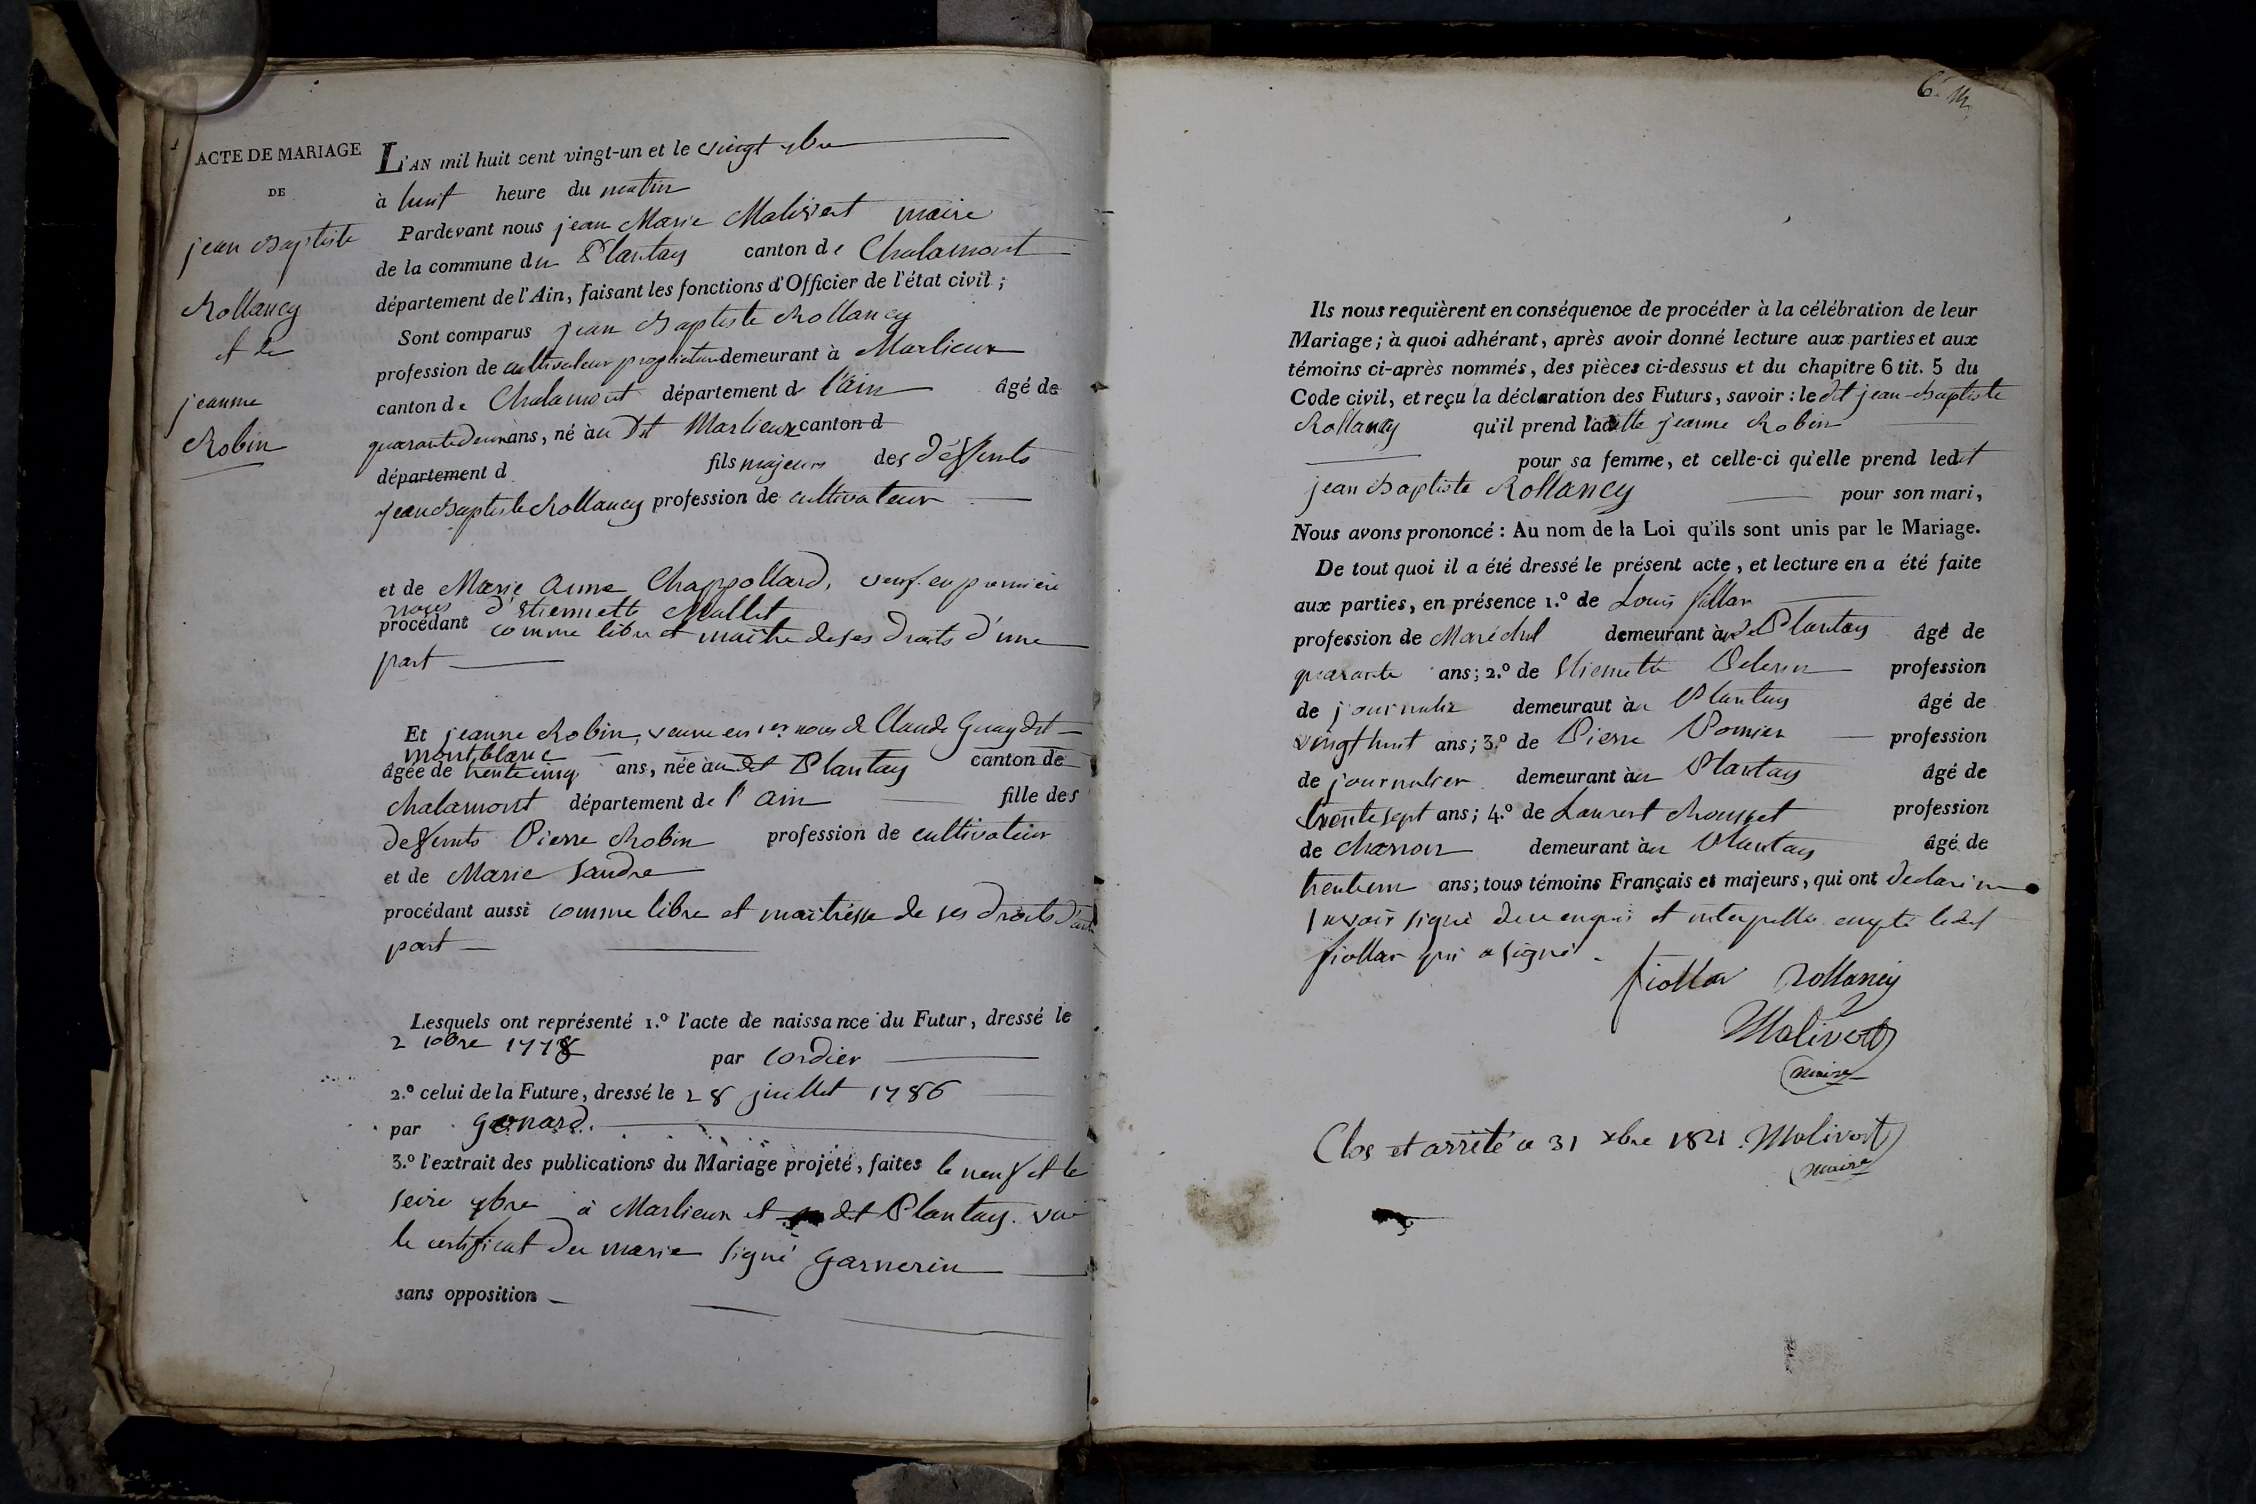 ACTE DE MARIAGE
DE
jean Baptiste
Rollancy
et de
jeanne
Robin
L'AN mil huit cent vingt-un et le vingt 9bre
à huit heure du matin
Pardevant nous jean Marie Malivert maire
de la commune du Plantay canton de Chalamont
département de l'Ain, faisant les fonctions d'Officier de l'état civil ;
Sont comparus jean Baptiste Rollancy
profession de cultivateur proprietaire demeurant à Marlieux
canton de Chalamont département de l'ain âgé de
quarante deux ans, né au dit Marlieux canton d
département d fils majeurs des deffunts
jean Baptiste Rollancy profession de cultivateur
et de Marie Anne Chappollard, veuf en premiere
noces d'Etiennette Mallet
procédant comme libre et maitre de ses droits d'une
part
Et jeanne Robin, veuve en 1eres noces de Claude Guay dit
montblanc
âgée de trente cinq ans, née au dit Plantay canton de
chalamont département de l'ain fille des
deffunts Pierre Robin profession de cultivateur
et de Marie Sandre
procédant aussi comme libre et maitresse de ses droits d'autre
part
Lesquels ont représenté 1.º l'acte de naissance du Futur, dressé le
2 10bre 1778 par Cordier
2.º celui de la Future, dressé le 28 juillet 1786
par Gonard.
3.º l'extrait des publications du Mariage projeté, faites le neuf et le
seize 9bre à Marlieux et dit Plantay. vu
le certificat du marie signé Garnerin
sans opposition
6
Ils nous requièrent en conséquence de procéder à la célébration de leur
Mariage ; à quoi adhérant, après avoir donné lecture aux parties et aux
témoins ci-après nommés, des pièces ci-dessus et du chapitre 6 tit. 5 du
Code civil, et reçu la déclaration des Futurs, savoir : le dit jean-Baptiste
Rollancy qu'il prend ladite jeanne Robin
pour sa femme, et celle-ci qu'elle prend ledit
jean Baptiste Rollancy pour son mari,
Nous avons prononcé : Au nom de la Loi qu'ils sont unis par le Mariage.
De tout quoi il a été dressé le présent acte, et lecture en a été faite
aux parties, en présence 1.º de Louis fiollar
profession de Maréchal demeurant au Plantay âgé de
quarante ans ; 2.º de Etiennette profession
de journalier demeurant au Plantay âgé de
vingt huit ans ; 3.º de Pierre Pomier profession
de journalier demeurant au Plantay âgé de
trente sept ans ; 4.º de Laurent Rousset profession
de charron demeurant au Plantay âgé de
trente un ans ; tous témoins Français et majeurs, qui ont declaré ne
savoir signé de ce enquis et interpellés excepté ledit
fiollar qui a signé.
fiollar Rollancy
Malivert
maire
Clos et arrêté ce 31 xbre 1821. Malivert
maire